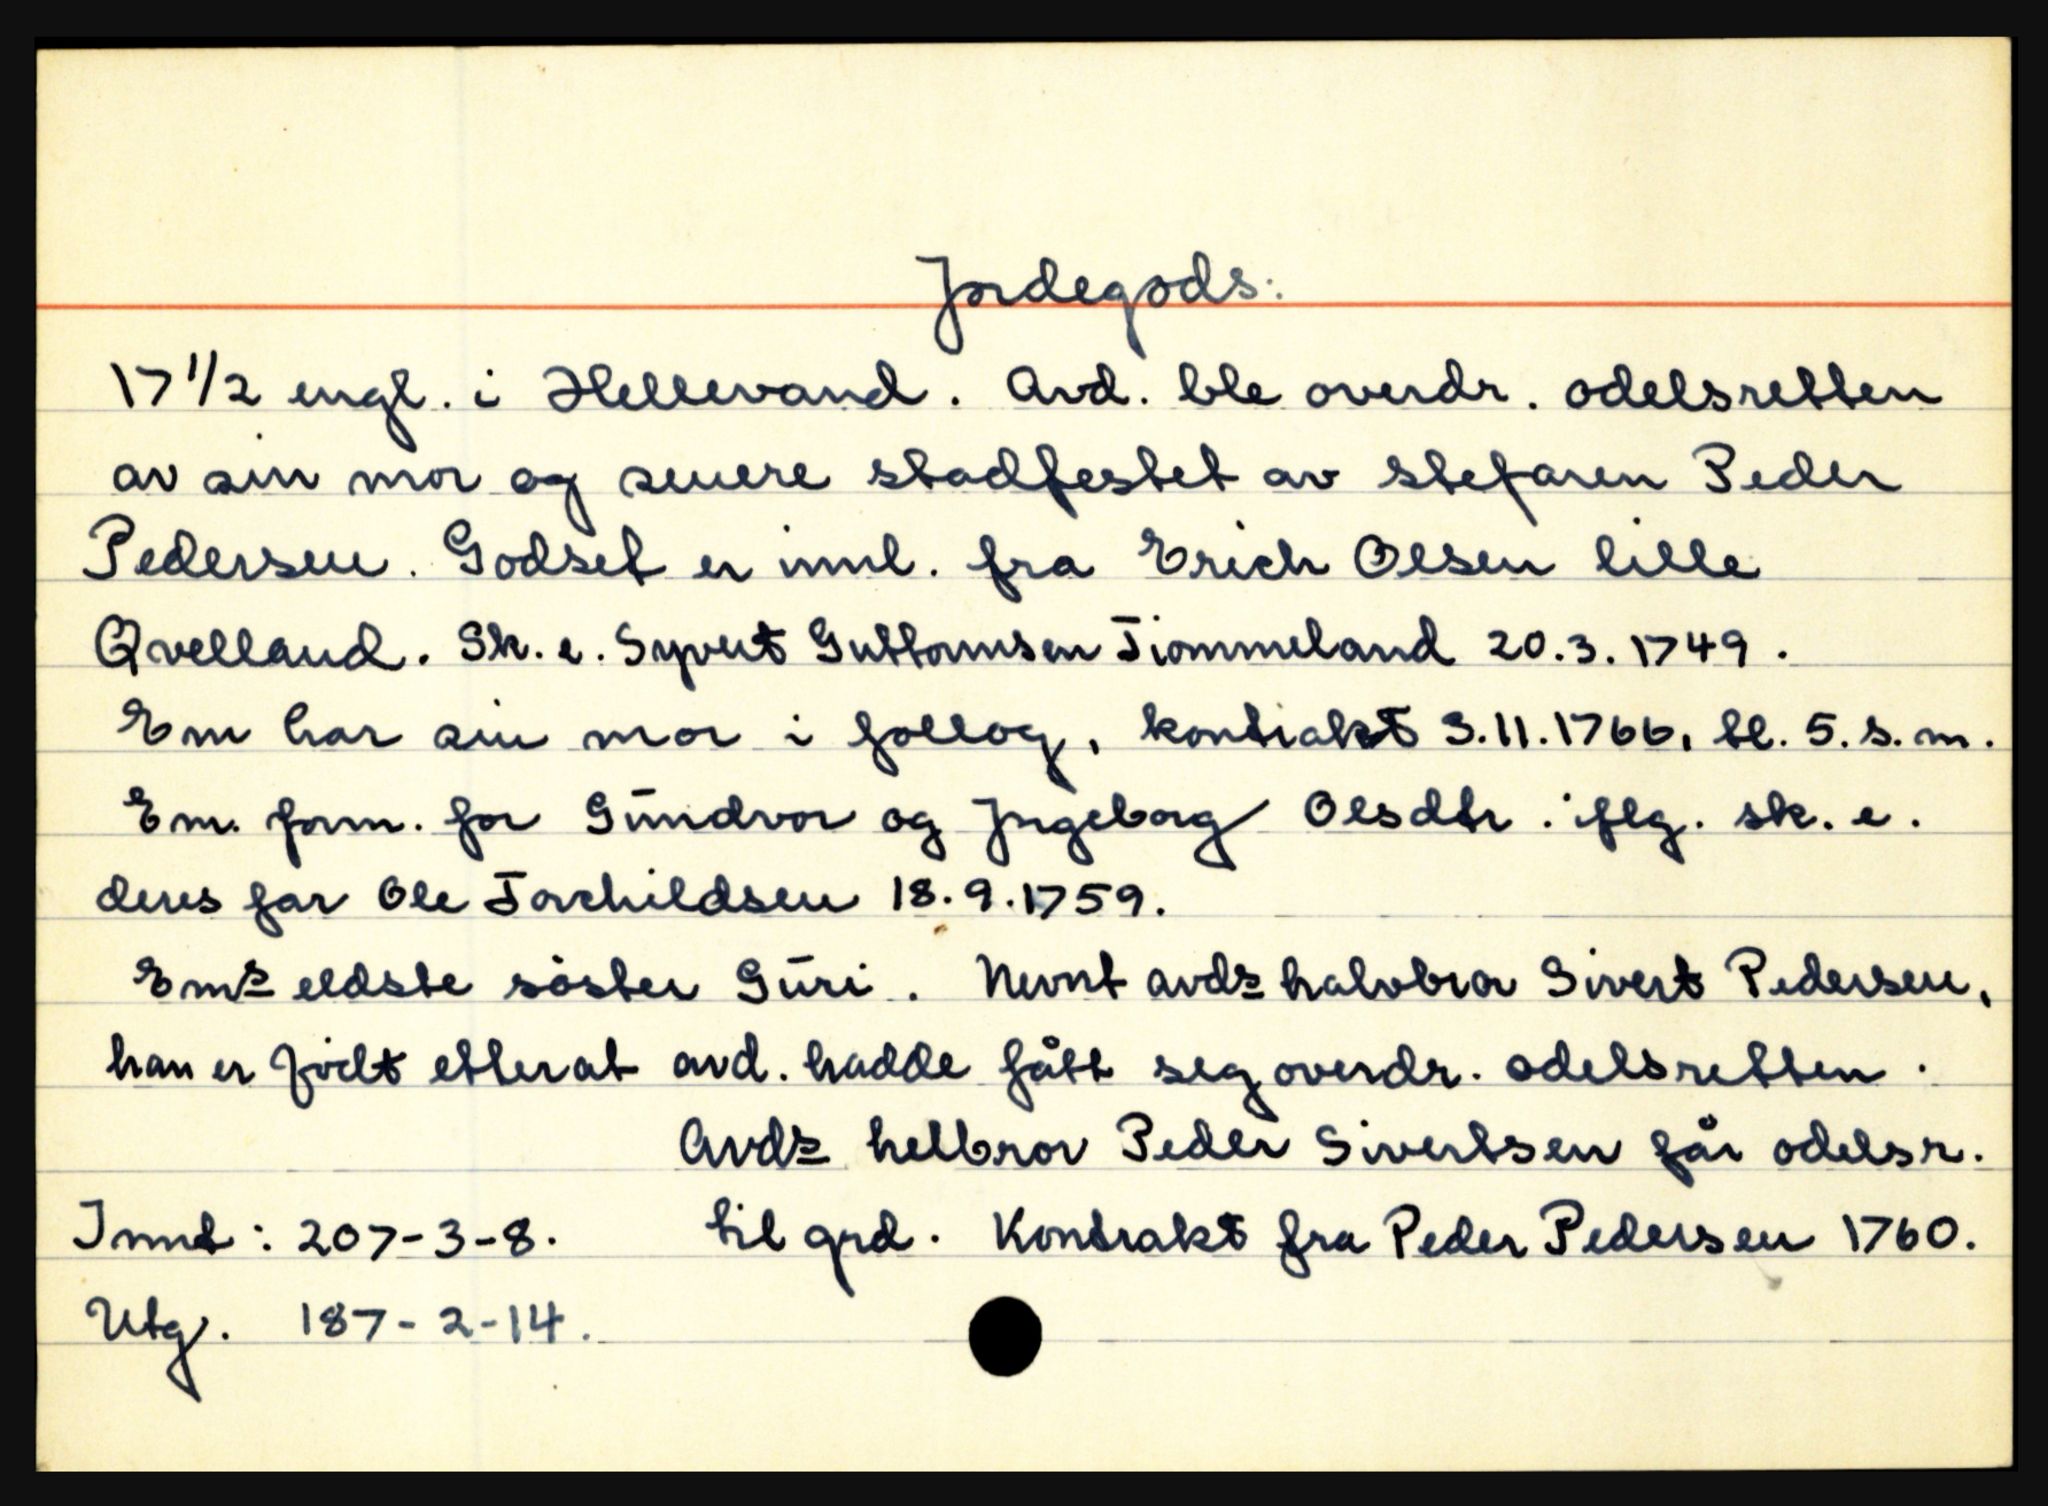 Jordegods:
17 1/2 engl. i Hellevand. Avd. ble overdr. odelsretten
av sin mor og senere stadfestet av stefaren Peder
Pedersen. Godset er innl. fra Erich Olsen lille
Qvelland. Sk. e. Syvert Guttormsen Tiommeland 20.3.1749.
Em har sin mor i follog, kontrakt 3.11.1766, bl. 5. s. m.
Em. form. for Gündvor og Jngeborg Olsdtr. iflg. sk. e.
deres far Ole Torchildsen 18.9.1759.
Ems eldste söster Güri. Nevnt avds halvbror Sivert Pedersen,
han er födt etterat avd. hadde fått seg overdr. odelsretten.
Avds helbror Peder Sivertsen får odelsr.
Innt: 207-3-8. til grd. Kontrakt fra Peder Pedersen 1760.
Utg. 187-2-14.